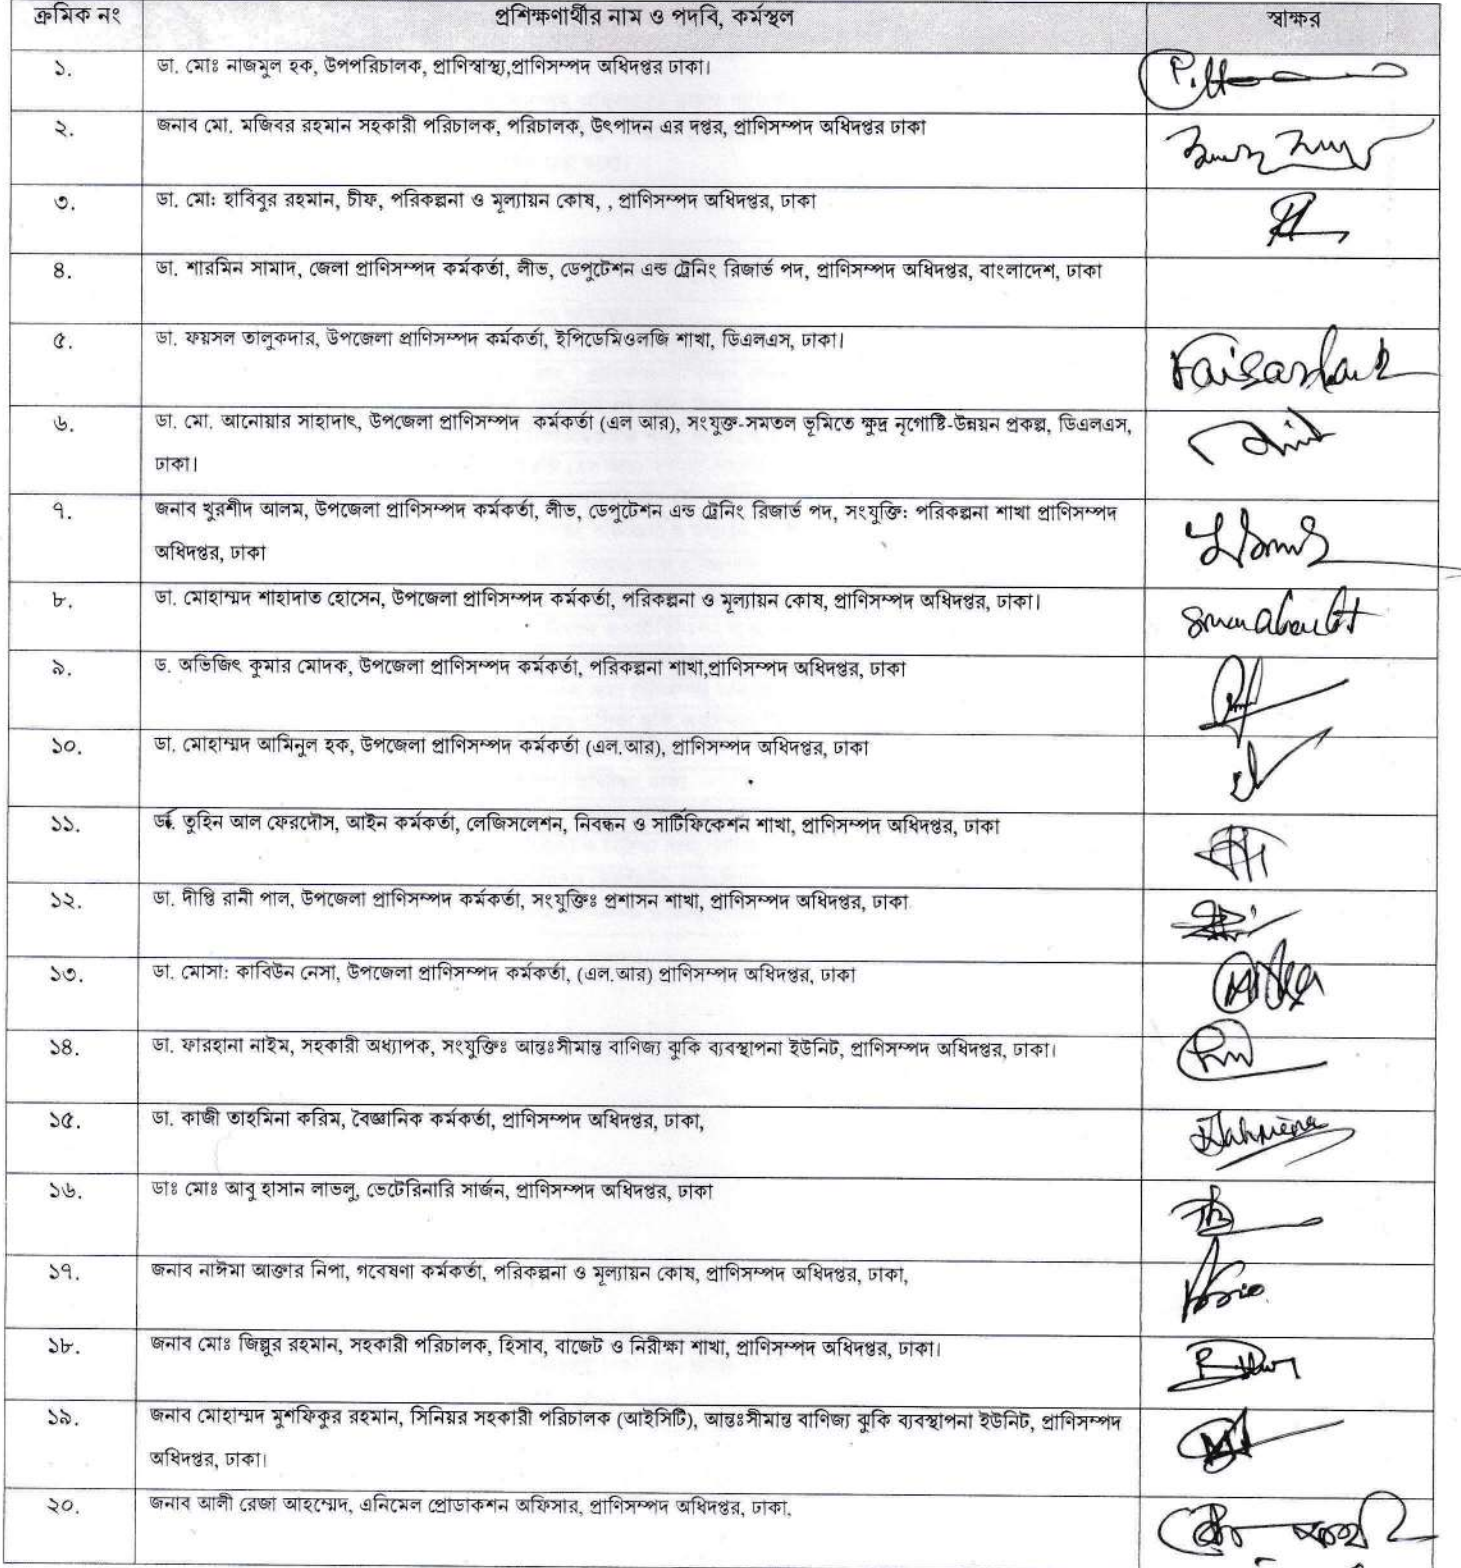 ক্রমিক নং প্রশিক্ষণার্থীর নাম ও পদবি, কর্মস্থল স্বাক্ষর
১. ডা. মোঃ নাজমুল হক, উপপরিচালক, প্রাণিস্বাস্থ্য,প্রাণিসম্পদ অধিদপ্তর ঢাকা।
২. জনাব মো. মজিবর রহমান সহকারী পরিচালক, পরিচালক, উৎপাদন এর দপ্তর, প্রাণিসম্পদ অধিদপ্তর ঢাকা
৩. ডা. মো: হাবিবুর রহমান, চীফ, পরিকল্পনা ও মূল্যায়ন কোষ, , প্রাণিসম্পদ অধিদপ্তর, ঢাকা
৪. ডা. শারমিন সামাদ, জেলা প্রাণিসম্পদ কর্মকর্তা, লীভ, ডেপুটেশন এন্ড ট্রেনিং রিজার্ভ পদ, প্রাণিসম্পদ অধিদপ্তর, বাংলাদেশ, ঢাকা
৫. ডা. ফয়সল তালুকদার, উপজেলা প্রাণিসম্পদ কর্মকর্তা, ইপিডেমিওলজি শাখা, ডিএলএস, ঢাকা।
৬. ডা. মো. আনোয়ার সাহাদাৎ, উপজেলা প্রাণিসম্পদ কর্মকর্তা (এল আর), সংযুক্ত-সমতল ভূমিতে ক্ষুদ্র নৃগোষ্টি-উন্নয়ন প্রকল্প, ডিএলএস,
ঢাকা।
৭. জনাব খুরশীদ আলম, উপজেলা প্রাণিসম্পদ কর্মকর্তা, লীভ, ডেপুটেশন এন্ড ট্রেনিং রিজার্ভ পদ, সংযুক্তি: পরিকল্পনা শাখা প্রাণিসম্পদ
অধিদপ্তর, ঢাকা
৮. ডা. মোহাম্মদ শাহাদাত হোসেন, উপজেলা প্রাণিসম্পদ কর্মকর্তা, পরিকল্পনা ও মূল্যায়ন কোষ, প্রাণিসম্পদ অধিদপ্তর, ঢাকা।
৯. ড. অভিজিৎ কুমার মোদক, উপজেলা প্রাণিসম্পদ কর্মকর্তা, পরিকল্পনা শাখা,প্রাণিসম্পদ অধিদপ্তর, ঢাকা
১০. ডা. মোহাম্মদ আমিনুল হক, উপজেলা প্রাণিসম্পদ কর্মকর্তা (এল.আর), প্রাণিসম্পদ অধিদপ্তর, ঢাকা
১১. তুহিন আল ফেরদৌস, আইন কর্মকর্তা, লেজিসলেশন, নিবন্ধন ও সার্টিফিকেশন শাখা, প্রাণিসম্পদ অধিদপ্তর, ঢাকা
১২. ডা. দীপ্তি রানী পাল, উপজেলা প্রাণিসম্পদ কর্মকর্তা, সংযুক্তিঃ প্রশাসন শাখা, প্রাণিসম্পদ অধিদপ্তর, ঢাকা
১৩. ডা. মোসা: কাবিউন নেসা, উপজেলা প্রাণিসম্পদ কর্মকর্তা, (এল.আর) প্রাণিসম্পদ অধিদপ্তর, ঢাকা
১৪. ডা. ফারহানা নাইম, সহকারী অধ্যাপক, সংযুক্তিঃ আন্তঃসীমান্ত বাণিজ্য ঝুকি ব্যবস্থাপনা ইউনিট, প্রাণিসম্পদ অধিদপ্তর, ঢাকা।
১৫. ডা. কাজী তাহমিনা করিম, বৈজ্ঞানিক কর্মকর্তা, প্রাণিসম্পদ অধিদপ্তর, ঢাকা,
১৬. ডাঃ মোঃ আবু হাসান লাভলু, ভেটেরিনারি সার্জন, প্রাণিসম্পদ অধিদপ্তর, ঢাকা
১৭. জনাব নাঈমা আক্তার নিপা, গবেষণা কর্মকর্তা, পরিকল্পনা ও মূল্যায়ন কোষ, প্রাণিসম্পদ অধিদপ্তর, ঢাকা,
১৮. জনাব মোঃ জিল্লুর রহমান, সহকারী পরিচালক, হিসাব, বাজেট ও নিরীক্ষা শাখা, প্রাণিসম্পদ অধিদপ্তর, ঢাকা।
১৯. জনাব মোহাম্মদ মুশফিকুর রহমান, সিনিয়র সহকারী পরিচালক (আইসিটি), আন্তঃসীমান্ত বাণিজ্য ঝুকি ব্যবস্থাপনা ইউনিট, প্রাণিসম্পদ
অধিদপ্তর, ঢাকা।
২০. জনাব আলী রেজা আহম্মেদ, এনিমেল প্রোডাকশন অফিসার, প্রাণিসম্পদ অধিদপ্তর, ঢাকা,